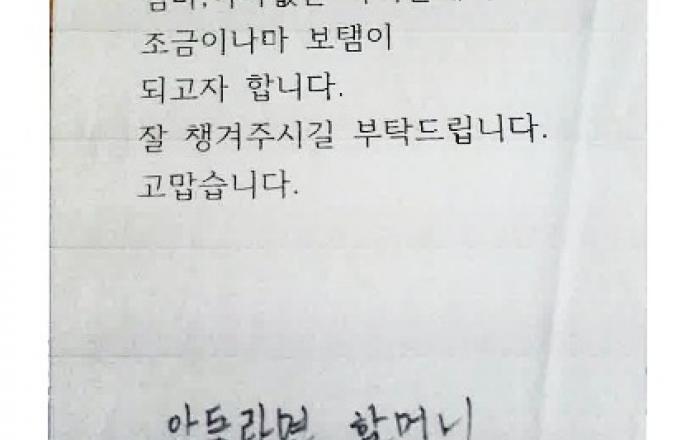 조금이나마 보탬이
되고자 합니다.
잘 챙겨주시길 부탁드립니다.
고맙습니다.
할머니